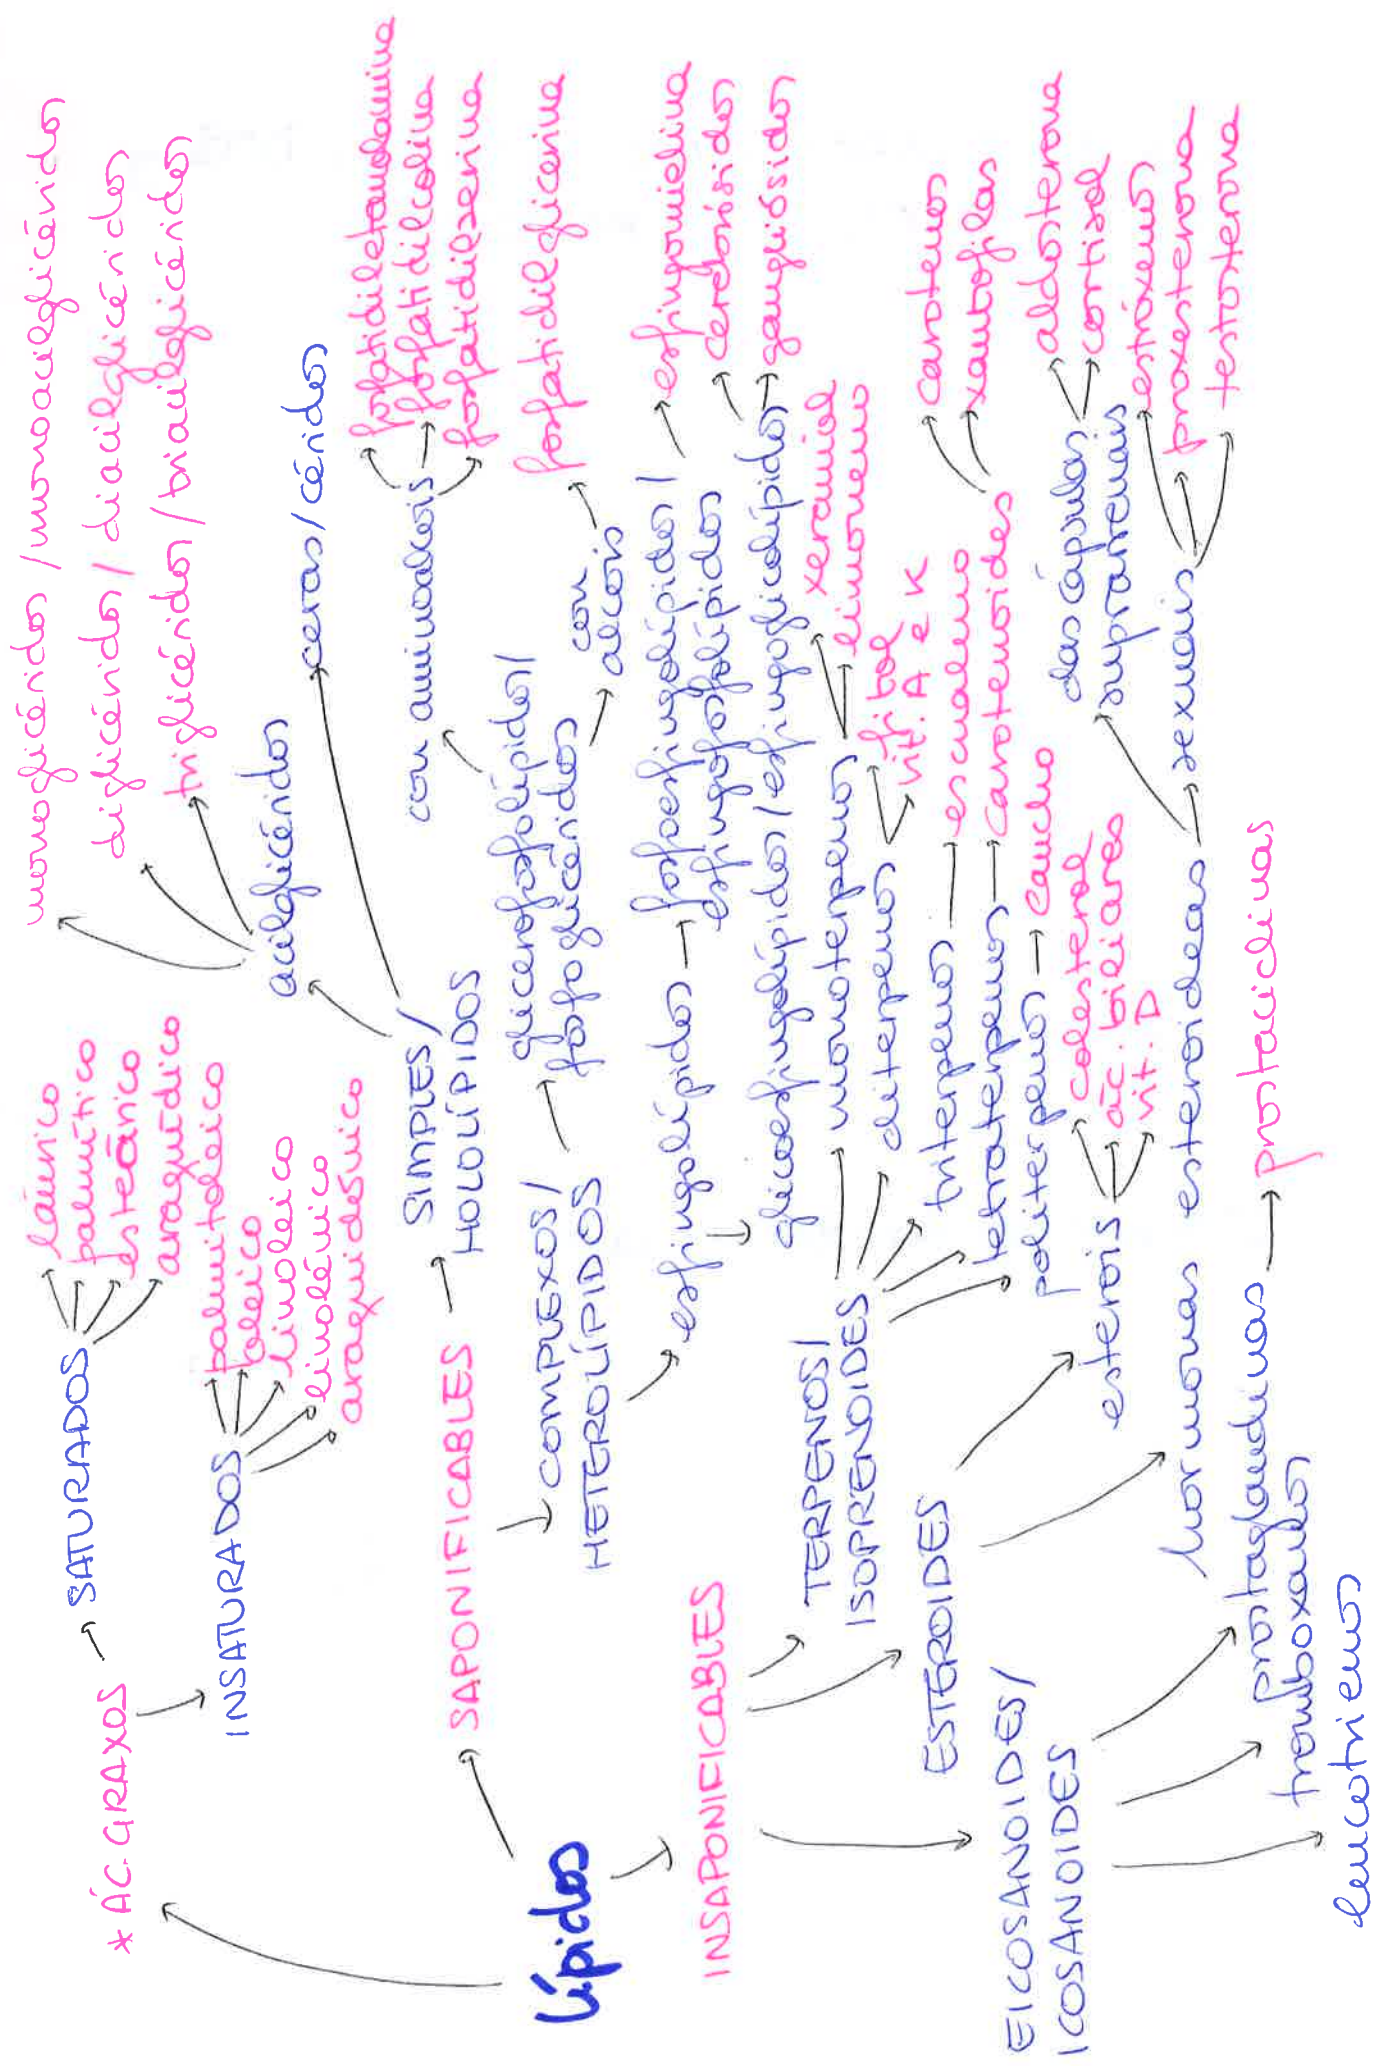 * ÁC. GRAXOS
SATURADOS
láurico
palmítico
esteárico
araquídico
INSATURADOS
palmitoleico
oleico
linoleico
linolénico
araquidónico
lípidos
SAPONIFICABLES
SIMPLES /
HOLOLÍPIDOS
acilglicéridos
monoglicéridos / monoacilglicéridos
diglicéridos / diacilglicéridos
triglicéridos / triacilglicéridos
ceras / céridos
COMPLEXOS /
HETEROLÍPIDOS
glicerofosfolípidos /
fosfoglicéridos
con aminoalcois
fosfatidiletanolamina
fosfatidilcolina
fosfatidilserina
con
alcois
fosfatidilglicerina
esfingolípidos
fosfoesfingolípidos /
esfingofosfolípidos
esfingomielina
glicoesfingolípidos / esfingoglicolípidos
cerebrósidos
gangliósidos
INSAPONIFICABLES
TERPENOS /
ISOPRENOIDES
monoterpenos
xeraniol
limoneno
diterpenos
fitol
vit. A e K
triterpenos
escualeno
tetraterpenos
carotenoides
carotenos
xantofilas
politerpenos
caucho
ESTEROIDES
esterois
colesterol
ác. biliares
vit. D
hormonas esteroideas
das cápsulas
suprarrenais
aldosterona
cortisol
sexuais
estróxenos
proxesterona
testosterona
EICOSANOIDES /
ICOSANOIDES
prostaglandinas
prostaciclinas
tromboxanos
leucotrienos